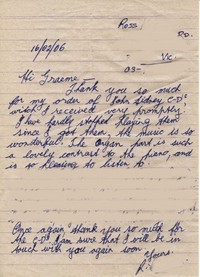 Ross
RD.
16/02/06
Vic.
03-
Hi Graeme -
Thank you so much
for my order of "John Sidney C-D's"
which I received very promptly,
I have hardly stopped playing them
since I got them, the music is so
wonderful. The Organ part is such
a lovely contrast to the piano, and
is so pleasing to listen to.
Once again thank you so much for
the C-D's I am sure that I will be in
touch with you again soon
Yours.